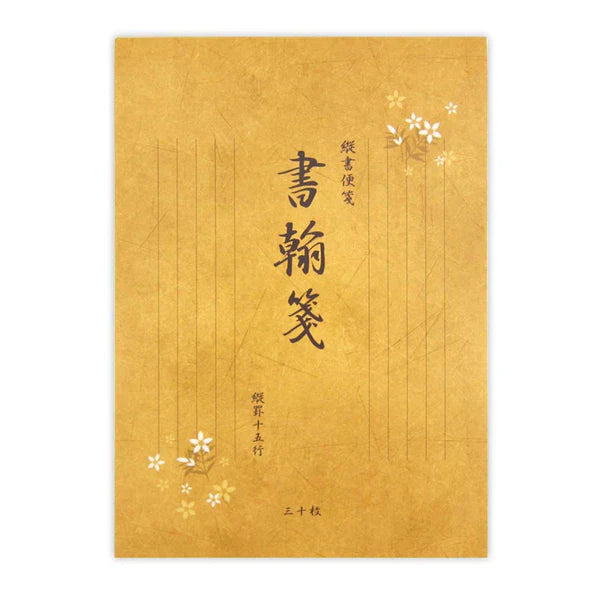 縦書便箋
書翰箋
縦罫十五行
三十枚